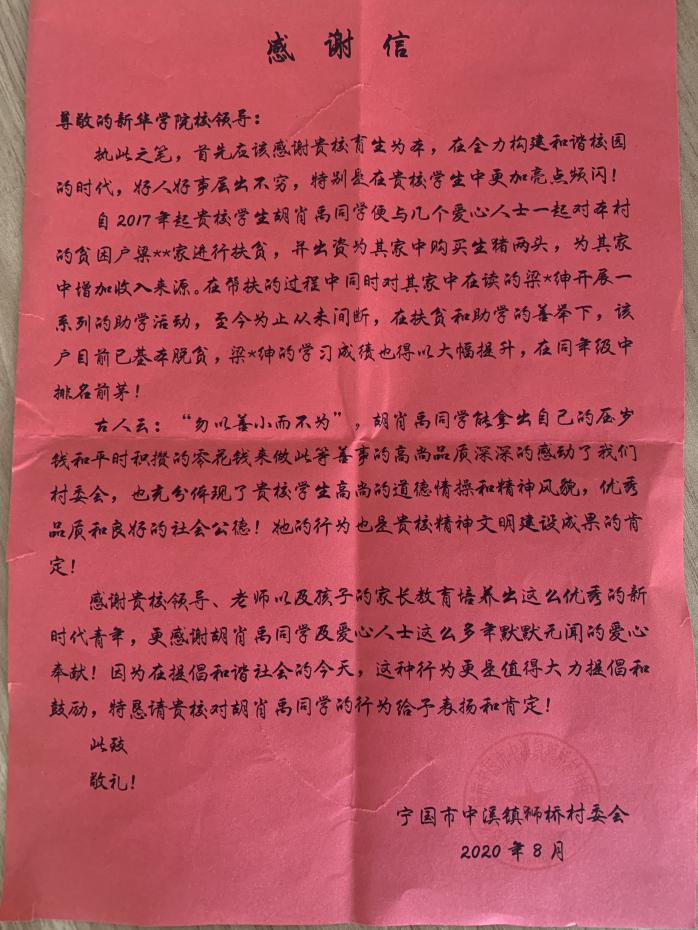 感谢信
尊敬的新华学院校领导：
执此之笔，首先应该感谢贵校育生为本，在全力构建和谐校园
的时代，好人好事层出不穷，特别是在贵校学生中更加亮点频闪！
自2017年起贵校学生胡肖禹同学便与几个爱心人士一起对本村
的贫困户梁**家进行扶贫，并出资为其家中购买生猪两头，为其家
中增加收入来源。在帮扶的过程中同时对其家中在读的梁*绅开展一
系列的助学活动，至今为止从未间断，在扶贫和助学的善举下，该
户目前已基本脱贫，梁*绅的学习成绩也得以大幅提升，在同年级中
排名前茅！
古人云：“勿以善小而不为”，胡肖禹同学能拿出自己的压岁
钱和平时积攒的零花钱来做此等善事的高尚品质深深的感动了我们
村委会，也充分体现了贵校学生高尚的道德情操和精神风貌，优秀
品质和良好的社会公德！她的行为也是贵校精神文明建设成果的肯
定！
感谢贵校领导、老师以及孩子的家长教育培养出这么优秀的新
时代青年，更感谢胡肖禹同学及爱心人士这么多年默默无闻的爱心
奉献！因为在提倡和谐社会的今天，这种行为更是值得大力提倡和
鼓励，特恳请贵校对胡肖禹同学的行为给予表扬和肯定！
此致
敬礼！
宁国市中溪镇狮桥村委会
2020年8月